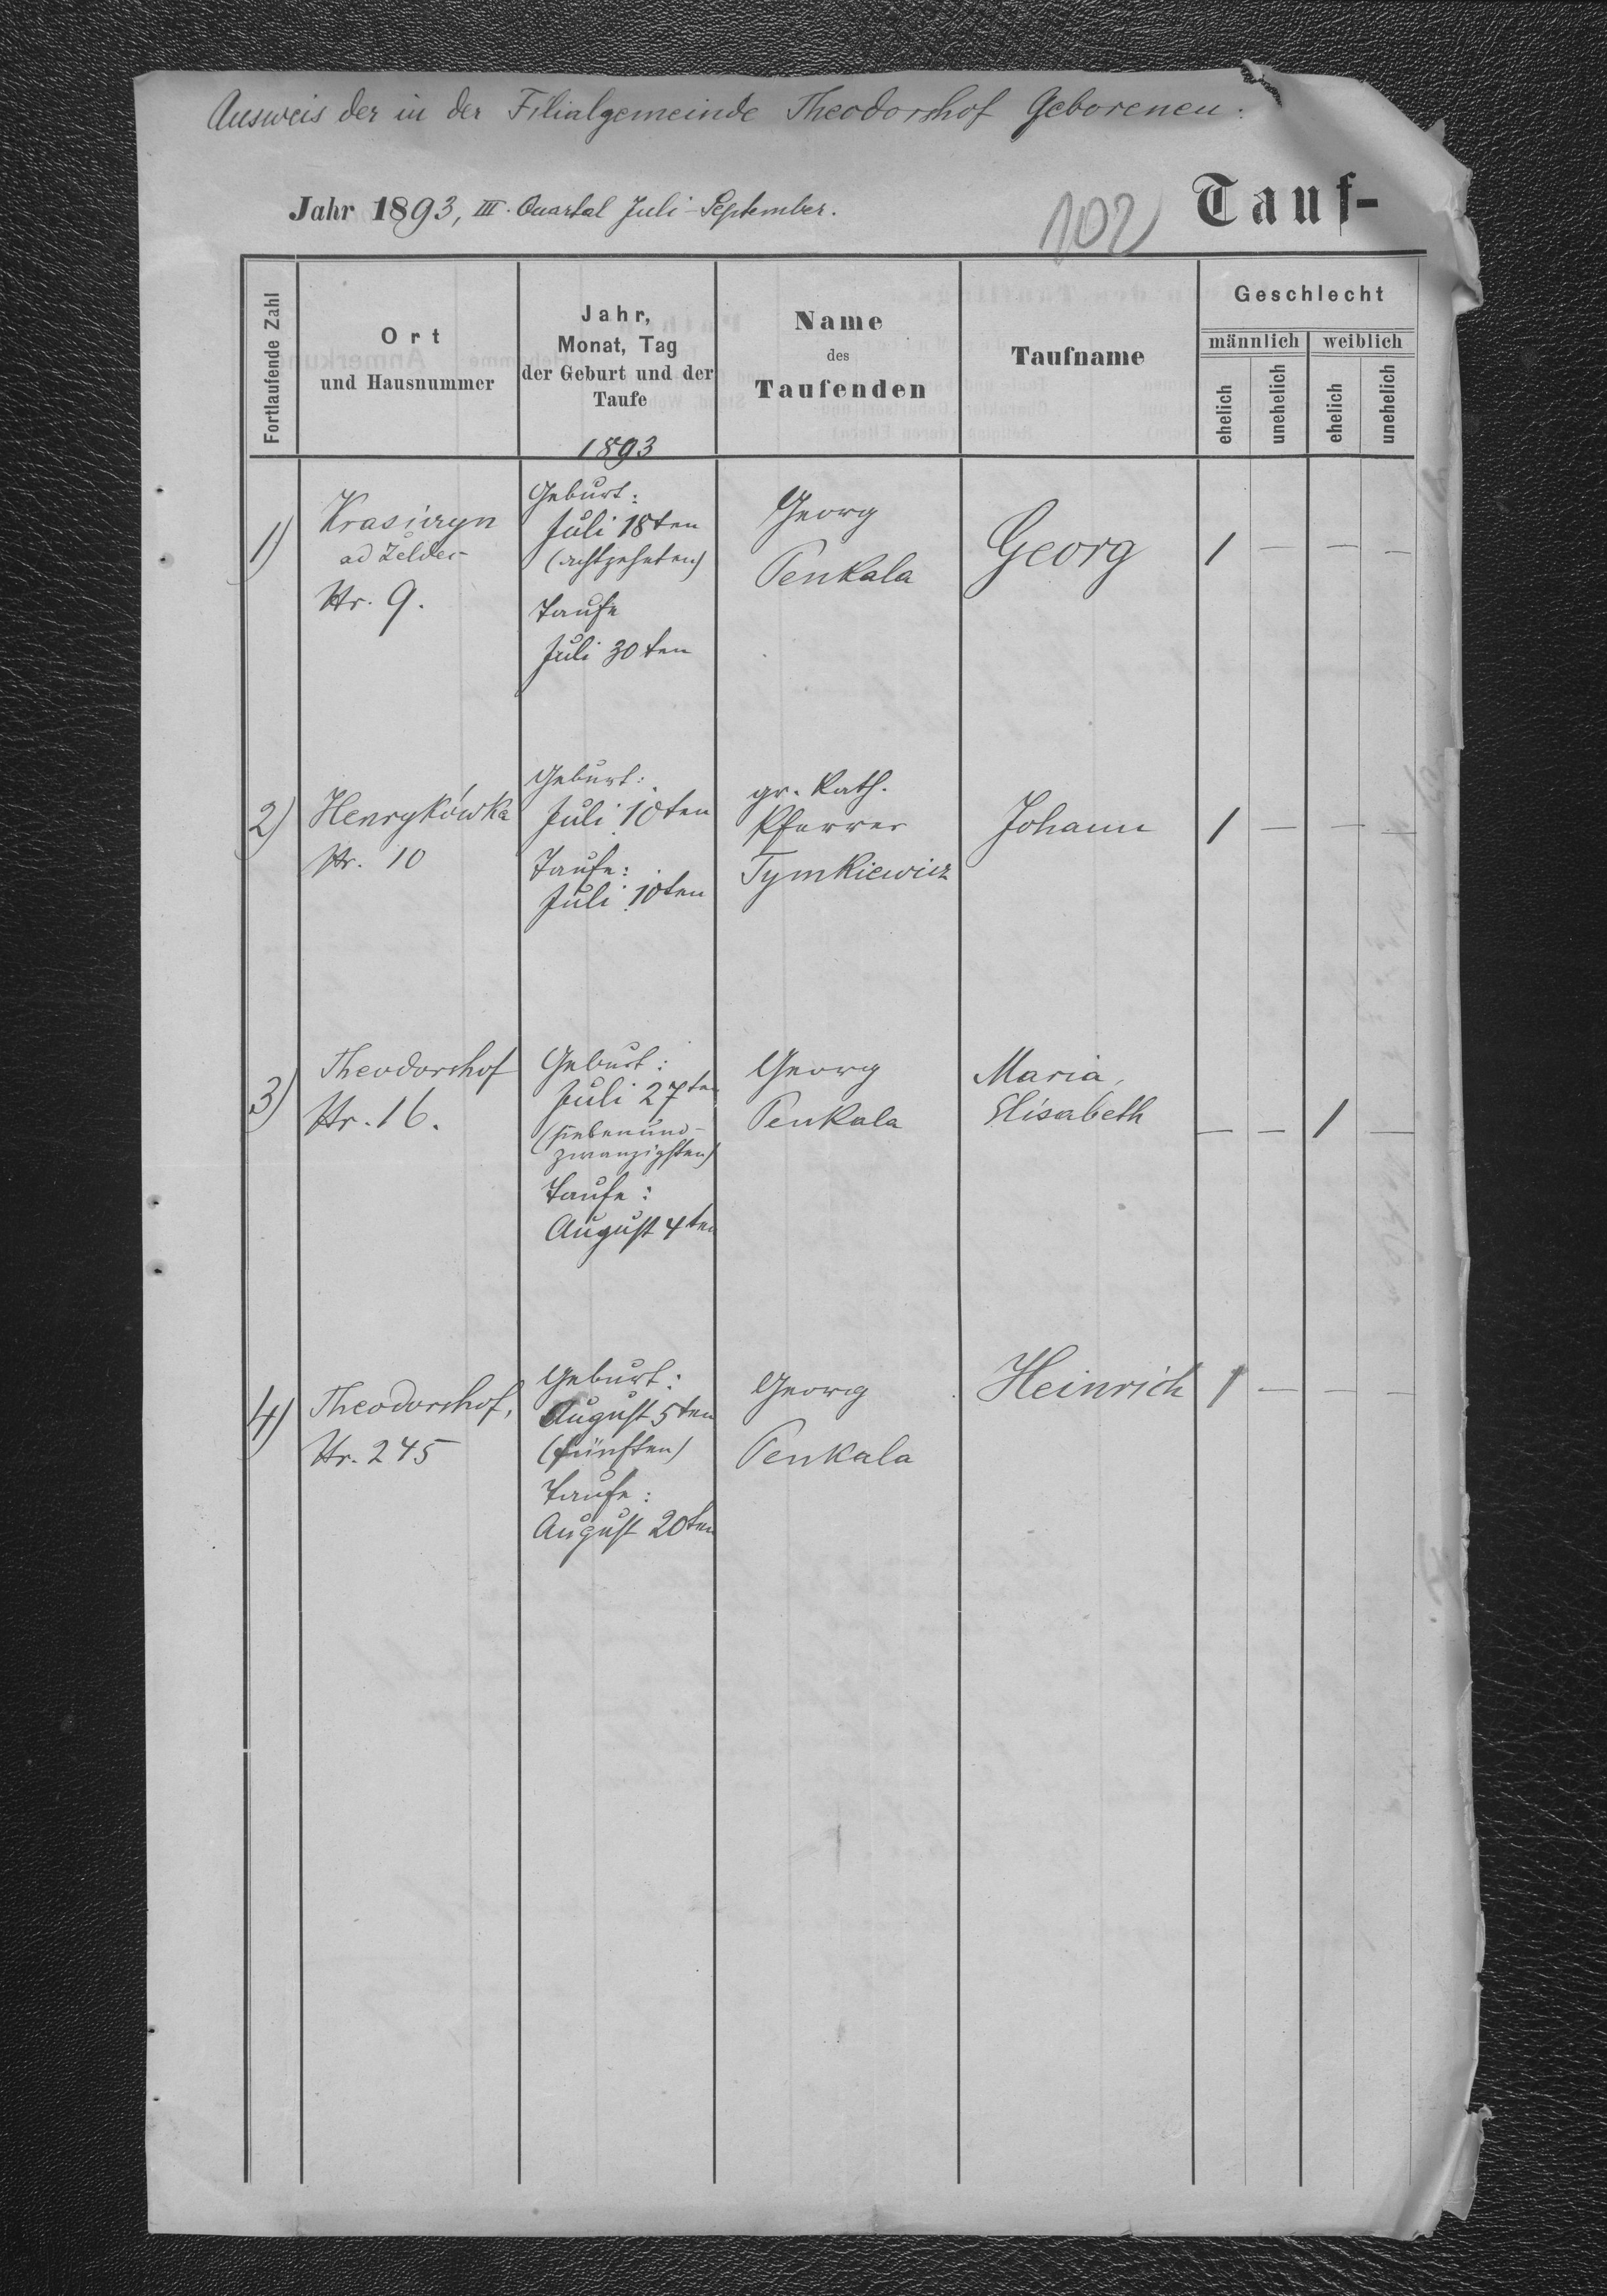 Ausweis der in der Filialgemeinde Theodorshof Geborenen.
Jahr 1893, III. Quartal Juli-September.
102
Tauf-
Fortlaufende Zahl
Ort
und Hausnummer
Jahr,
Monat, Tag
der Geburt und der
Taufe
1893
Name
des
Taufenden
Taufname
Geschlecht
männlich
weiblich
ehelich
unehelich
ehelich
unehelich
1)
Krasiczyn
ad Zeldec
Nr. 9.
Geburt:
Juli 18ten
(achtzehnten)
Taufe
Juli 30ten
Georg
Penkala
Georg
1 — — —
2)
Henrykówka
Nr. 10
Geburt:
Juli 10ten
Taufe:
Juli 10ten
gr. kath.
Pfarrer
Tymkiewicz
Johann
1 — — —
3)
Theodorshof
Nr. 16.
Geburt:
Juli 27ten
(siebenund-
zwanzigsten)
Taufe:
August 4ten
Georg
Penkala
Maria,
Elisabeth
— — 1 —
4)
Theodorshof,
Nr. 245
Geburt:
August 5ten
(fünften)
Taufe:
August 20ten
Georg
Penkala
Heinrich
1 — — —